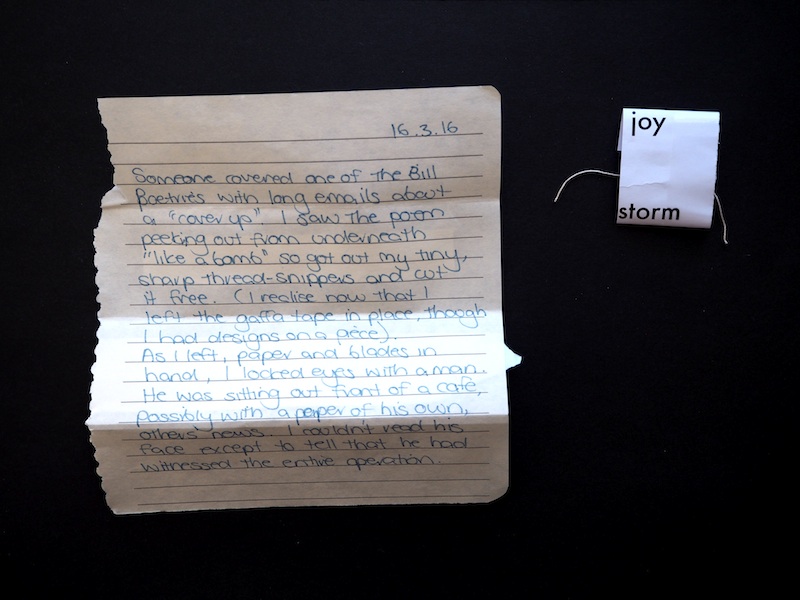 16.3.16
Someone covered one of the Bill
Poetries with long emails about
a "cover up". I saw the poem
peeking out from underneath
"like a bomb" so got out my tiny,
sharp thread-snippers and cut
it free. (I realise now that I
left the gaffa tape in place, though
I had designs on a piece).
As I left, paper and blades in
hand, I locked eyes with a man.
He was sitting out front of a cafe,
possibly with a paper of his own,
others' news. I couldn't read his
face except to tell that he had
witnessed the entire operation.
joy
storm